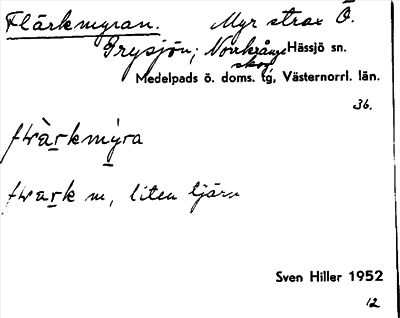 Flärkmyran. Myr strax Ö.
Grysjön; Norrkrånge
skog Hässjö sn.
Medelpads ö. doms. tg, Västernorrl. län.
36.
flàrkmýra
flark m, liten tjärn
Sven Hiller 1952
12